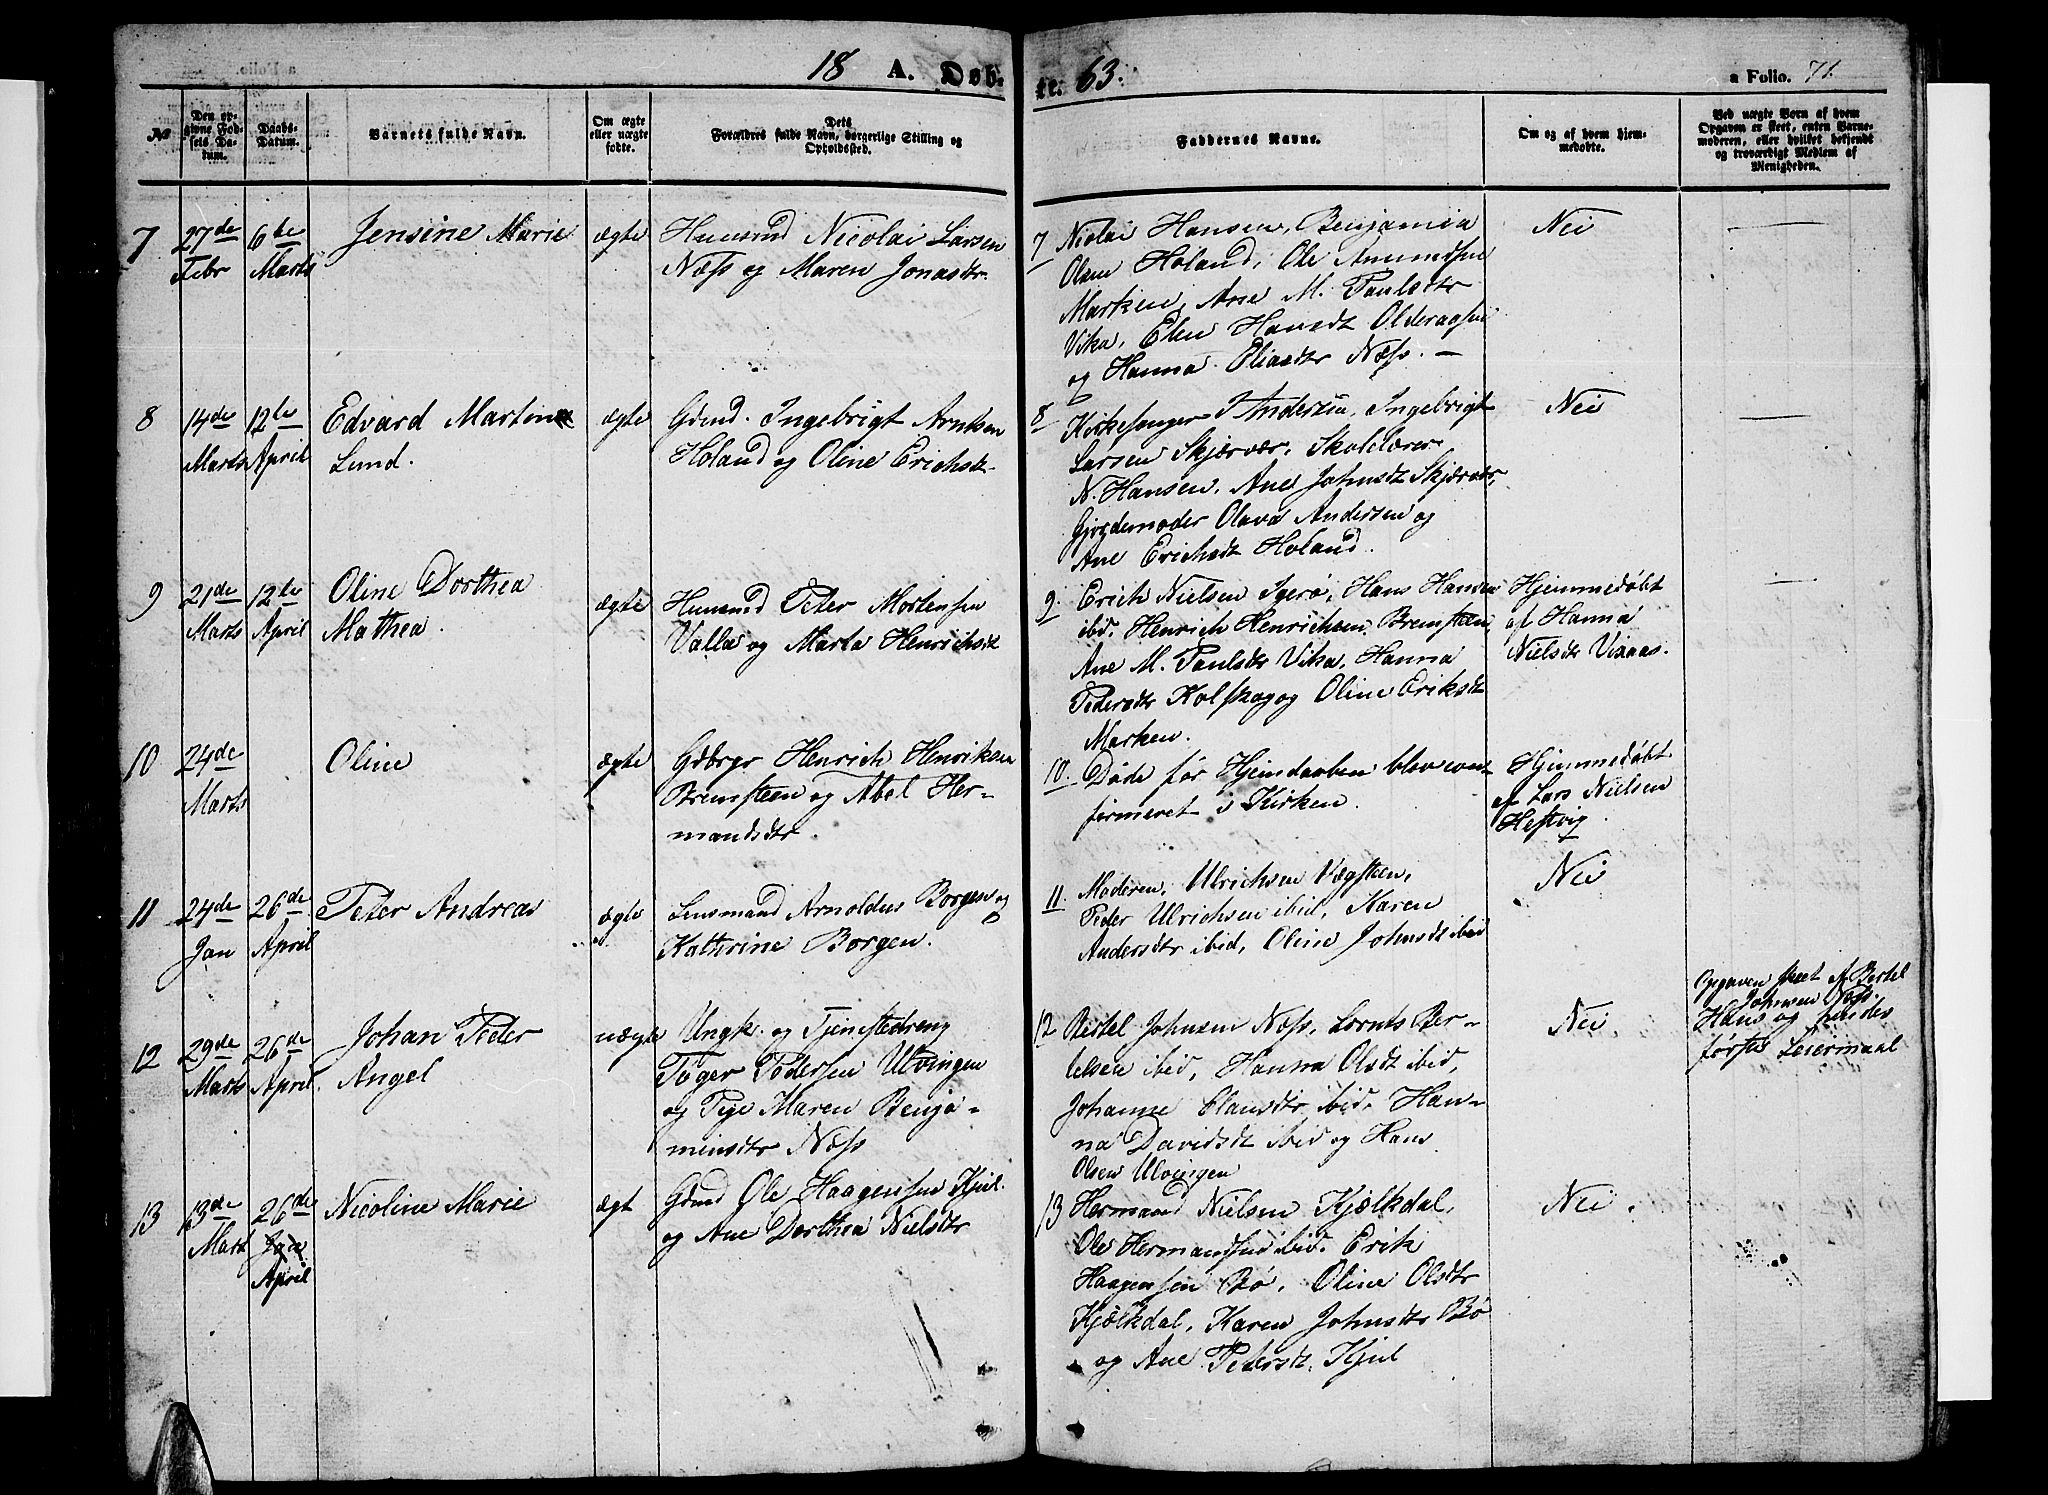 18 A. Døb-
te. 63.
a Folio. 71.
No
Den op-
givne Fød-
sels Da-
tum.
Daabs-
Datum.
Barnets fulde Navn.
Om ægte
eller uægte
fødte.
Dets
Forældres fulde Navn, borgerlige Stilling og
Opholdssted.
Faddernes Navne.
Om og af hvem hjem-
medøbte.
Ved uægte Børn af hvem
Opgaven er skeet, enten Barne-
moderen, eller hvilket bekjendt
og troværdigt Medlem af
Menigheden.
7
27de
Febr
6te
Marts
Jensine Marie
ægte
Huusmd Nicolai Larsen
Næss og Maren Jonasdtr.
7 Nicolai Hansen, Benjamin
Olsen Holand, Ole Amundsen
Marken, Ane M. Paulsdtr
Vika, Elen Hansdt
og Hanna Eliasdtr Næss. —
Nei
8
14de
Marts
12te
April
Edvard Martin
Lund.
ægte
Grmd. Ingebrigt Arntsen
Holand og Oline Erichsdt.
8 Kirkesanger Andersen, Ingebrigt
Larsen Skjærvær, Skolelærer
N. Hansen, Ane Johnsdt Skjærvær,
Gjordemoder Olava Andersen og
Ane Erichsdt Holand.
Nei
9
21de
Marts
12te
April
Oline Dorthea
Mathea.
ægte
Huusmd Peter Mortensen
Valla og Marta Henrichsdt
9. Erich Nielsen Igerø, Hans Hansen
ibid. Henrich Henrichsen Bremsteen,
Ane M. Paulsdtr Vika, Hanna
Pedersdtr Kalfskag og Oline Eriksdt
Marken.
Hjemmedøbt
af Hanna
Nielsdtr Vixaas.
10
24de
Marts
Oline
ægte
Gdbrgr Henrich Henriksen
Bremsteen og Abel Her-
mandsdtr.
10. Døde før Hjemdaaben blev con-
firmeret i Kirken.
Hjemmedøbt
af Lars Nielsen
Hestvig
11
24de
Jan
26de
April
Peter Andreas
ægte
Lensmand Arnoldus Borgen og
Kathrine Borgen.
11. Moderen, Ulrichsen Vægsteen,
Peder Ulrichsen ibid, Karen
Andersdtr ibid, Oline Johnsdt ibid
Nei
12
29de
Marts
26de
April.
Johan Peder
Angel
uægte
Ungk. og Tjenestedreng
Tøger Pedersen Ulvingen
og Pige Maren Benja-
minsdtr Næss
12 Bertel Johnsen Næss, Lornts Ber-
telsen ibid, Hanna Olsdt ibid,
Johanne Clausdtr ibid, Han-
na Davidsdt ibid og Hans
Olsen Ulvingen
Nei.
Opgaven skeet af Bertel
Johnsen Næss.
Hans og hendes
første Leiermaal
13
13de
Marts
26de
April
Nicoline Marie
ægt
Grmd Ole Haagensen Kjul.
og Ane Dorthea Nielsdtr
13 Hermand Nielsen Kjølkdal,
Ole Hermandsen ibid. Erik
Haagensen Bø, Oline Olsdtr
Kjølkdal, Karen Johnsdtr Bø
og Ane Petersdt. Kjul
Nei.